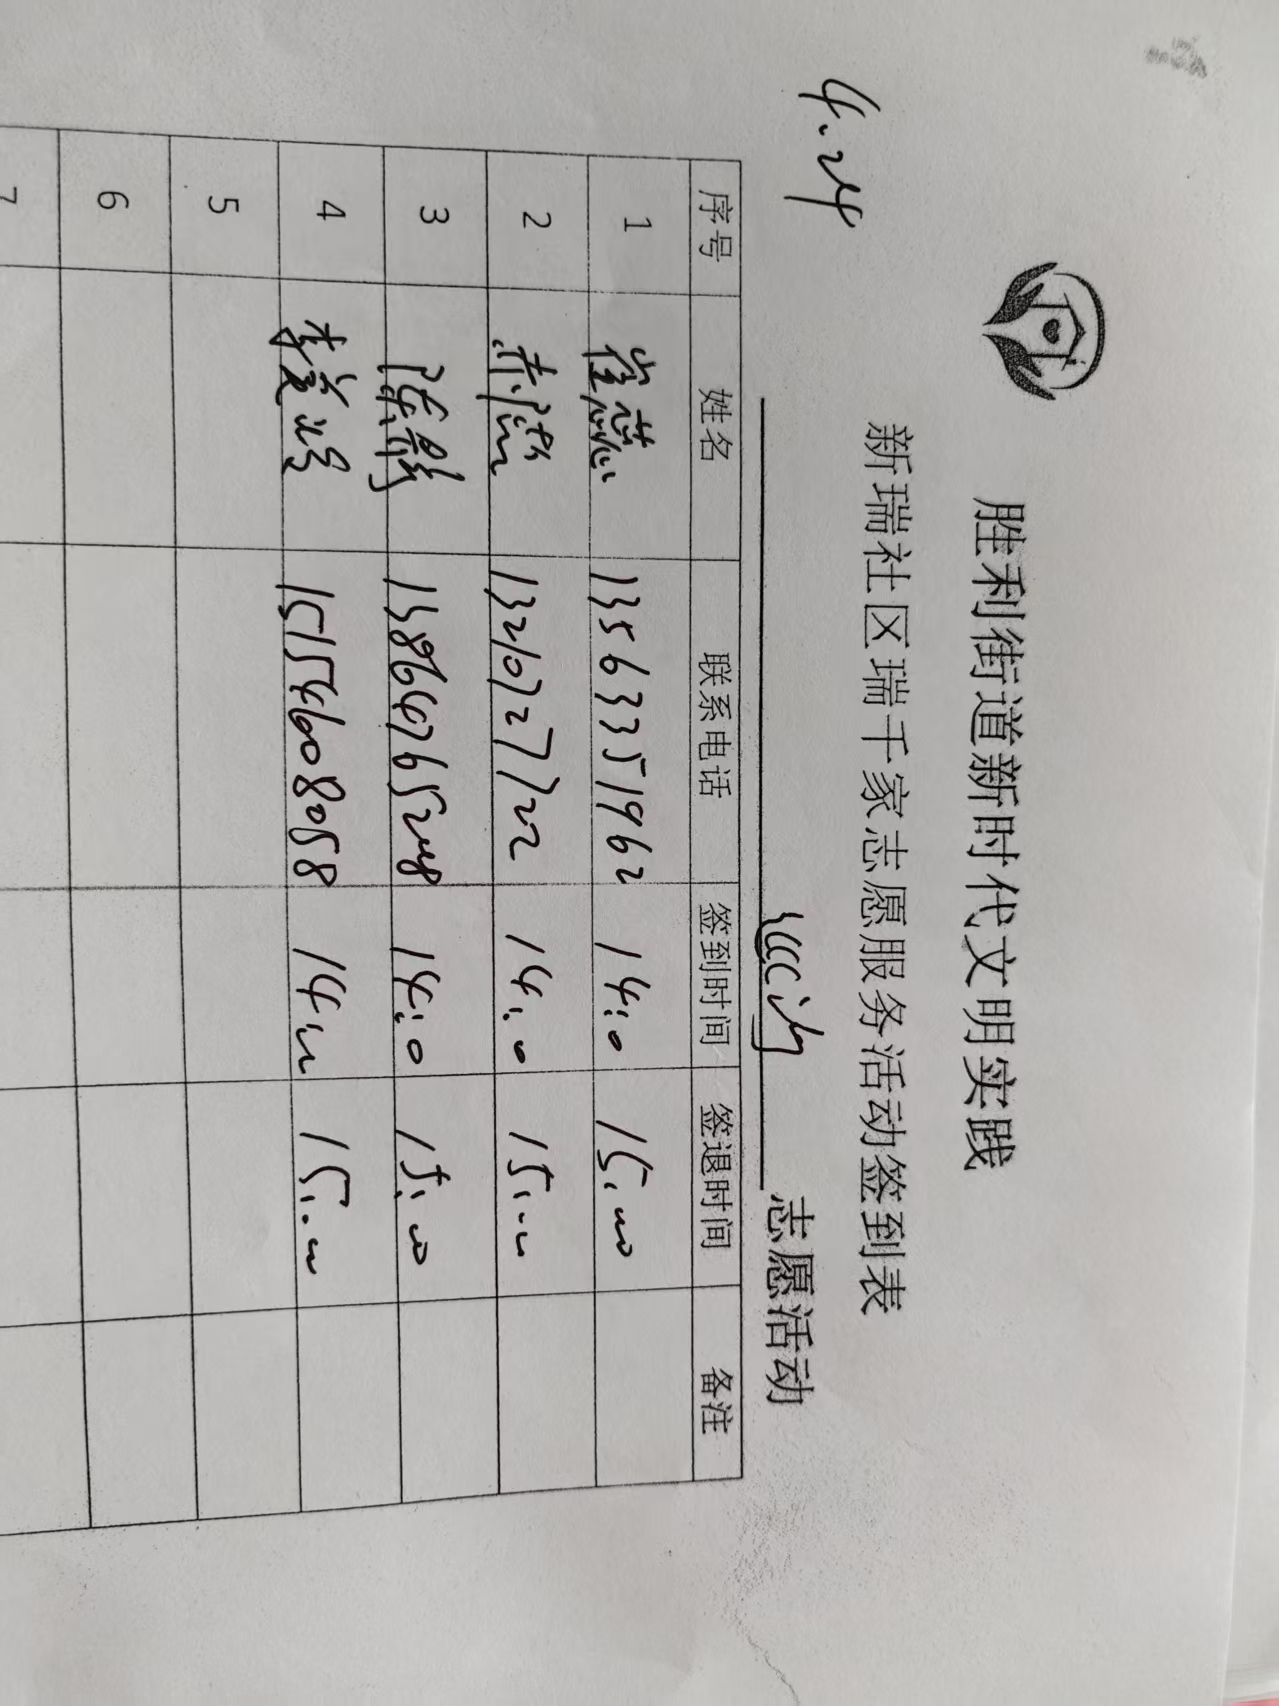 4.24
胜利街道新时代文明实践
新瑞社区瑞千家志愿服务活动签到表
志愿活动
序号 姓名 联系电话 签到时间 签退时间 备注
1 崔蕊 13563351962 14:0 15:00
2 13210727722 14:0 15:00
3 陈鹤 13864765248 14:0 15:00
4 李爱娟 15154608058 14:00 15:00
5
6
7